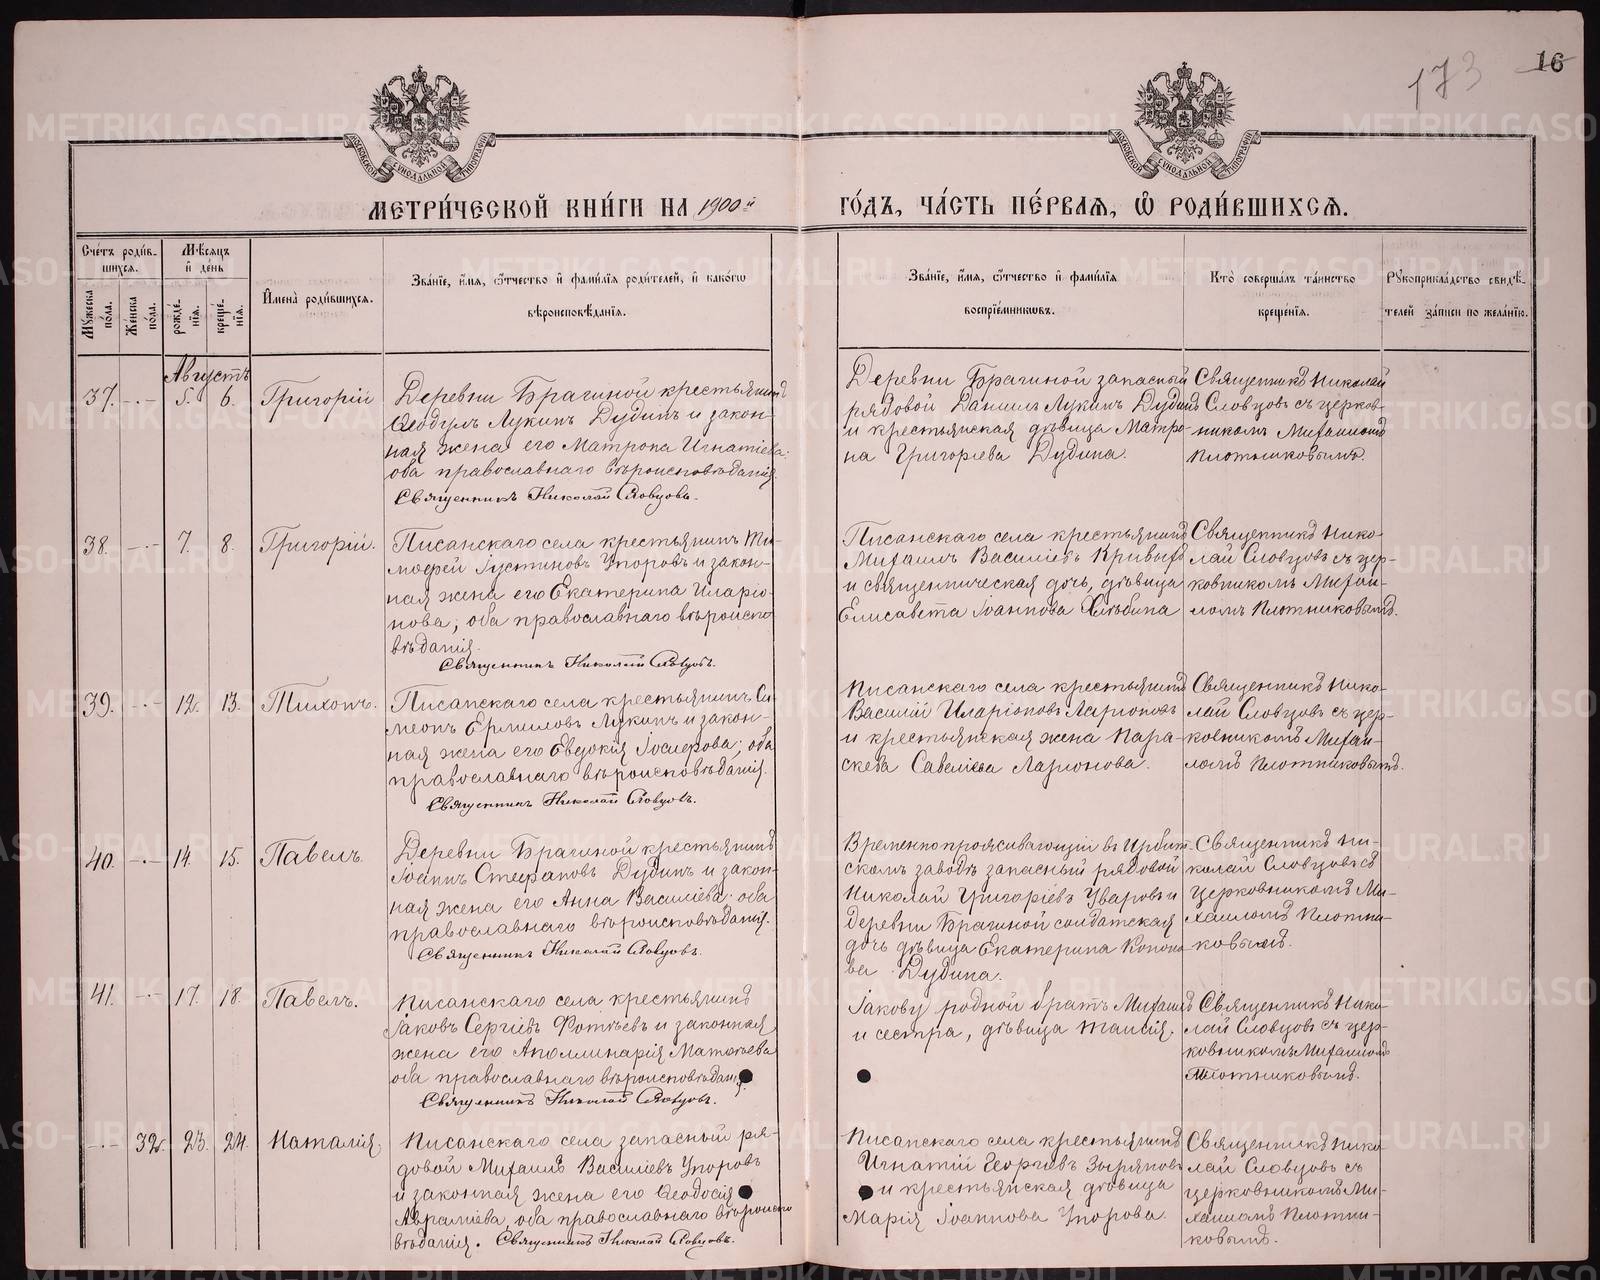 173 16
МЕТРИ́ЧЕСКОЙ КНИ́ГИ НА 1900й ГО́ДЪ, ЧА́СТЬ ПЕ́РВАЯ, Ѡ РОДИ́ВШИХСЯ.
Сче́тъ роди́в-
шихся.
Мѣ́сяцъ
и́ де́нь
Му́жеска по́ла.
Же́нска по́ла.
рожде́-
нїя.
креще́-
нїя.
И҆мена̀ роди́вшихся.
Зва́нїе, и҆́мя, ѻ҆́тчество и҆ фами́лїя роди́телей, и҆ како́гѡ
вѣроисповѣ́данїя.
Зва́нїе, и҆́мя, ѻ҆́тчество и҆ фами́лїя
воспрїе́мникѡвъ.
Кто̀ соверша́лъ та́инство
креще́нїя.
Рꙋкоприкла́дство свидѣ́-
телей за́писи по жела́нїю.
Августъ
37. -.- 5. 6. Григорій
Деревни Брагиной крестьянинъ
Ѳеодулъ Лукинъ Дудинъ и закон-
ная жена его Матрона Игнатіева
оба православнаго вѣроисповѣданія.
Священникъ Николай Словцовъ.
Деревни Брагиной запасный
рядовой Даниилъ Лукинъ Дудинъ
и крестьянская дѣвица Матро-
на Григоріева Дудина.
Священникъ Николай
Словцовъ съ церков-
никомъ Михаиломъ
Плотниковымъ.
38. -.- 7. 8. Григорій.
Писанскаго села крестьянинъ Ти-
моѳей Іустиновъ Упоровъ и закон-
ная жена его Екатерина Иларіо-
нова, оба православнаго вѣроиспо-
вѣданія.
Священникъ Николай Словцовъ.
Писанскаго села крестьянинъ
Михаилъ Василіевъ Кривыхъ
и священническая дочь, дѣвица
Елисавета Іоаннова Хлѣбина
Священникъ Нико-
лай Словцовъ съ цер-
ковникомъ Михаи-
ломъ Плотниковымъ.
39. -.- 12. 13. Тихонъ.
Писанскаго села крестьянинъ Си-
меонъ Ермиловъ Лукинъ и закон-
ная жена его Евдокія; оба
православнаго вѣроисповѣданія.
Священникъ Николай Словцовъ.
Писанскаго села крестьянинъ
Василій Иларіоновъ Ларіоновъ
и крестьянская жена Пара-
скева Савеліева Ларіонова.
Священникъ Нико-
лай Словцовъ съ цер-
ковникомъ Михаи-
ломъ Плотниковымъ.
40. -.- 14. 15. Павелъ.
Деревни Брагиной крестьянинъ
Іоаннъ Стефановъ Дудинъ и закон-
ная жена его Анна Василіева; оба
православнаго вѣроисповѣданія.
Священникъ Николай Словцовъ.
Временно проживающій въ Ирбит-
скомъ заводѣ запасный рядовой
Николай Григоріевъ Уваровъ и
деревни Брагиной солдатская
дочь дѣвица Екатерина Кононо-
ва Дудина.
Священникъ Ни-
колай Словцовъ съ
церковникомъ Ми-
хаиломъ Плотни-
ковымъ.
41. -.- 17. 18. Павелъ.
Писанскаго села крестьянинъ
Іаковъ Сергіевъ Фотѣевъ и законная
жена его Аполлинарія Матѳѣева
оба православнаго вѣроисповѣданія.
Священникъ Николай Словцовъ.
Іакову родной братъ Михаилъ
и сестра, дѣвица Таисія.
Священникъ Нико-
лай Словцовъ съ цер-
ковникомъ Михаиломъ
Плотниковымъ.
-.- 32. 23. 24. Наталія
Писанскаго села запасный ря-
довой Михаилъ Василіевъ Упоровъ
и законная жена его Ѳеодосія
Авраміева, оба православнаго вѣроиспо-
вѣданія. Священникъ Николай Словцовъ.
Писанскаго села крестьянинъ
Игнатій Георгіевъ Зыряновъ
и крестьянская дѣвица
Марія Іоаннова Упорова.
Священникъ Нико-
лай Словцовъ съ
церковникомъ Ми-
хаиломъ Плотни-
ковымъ.
METRIKI.GASO-URAL.RU